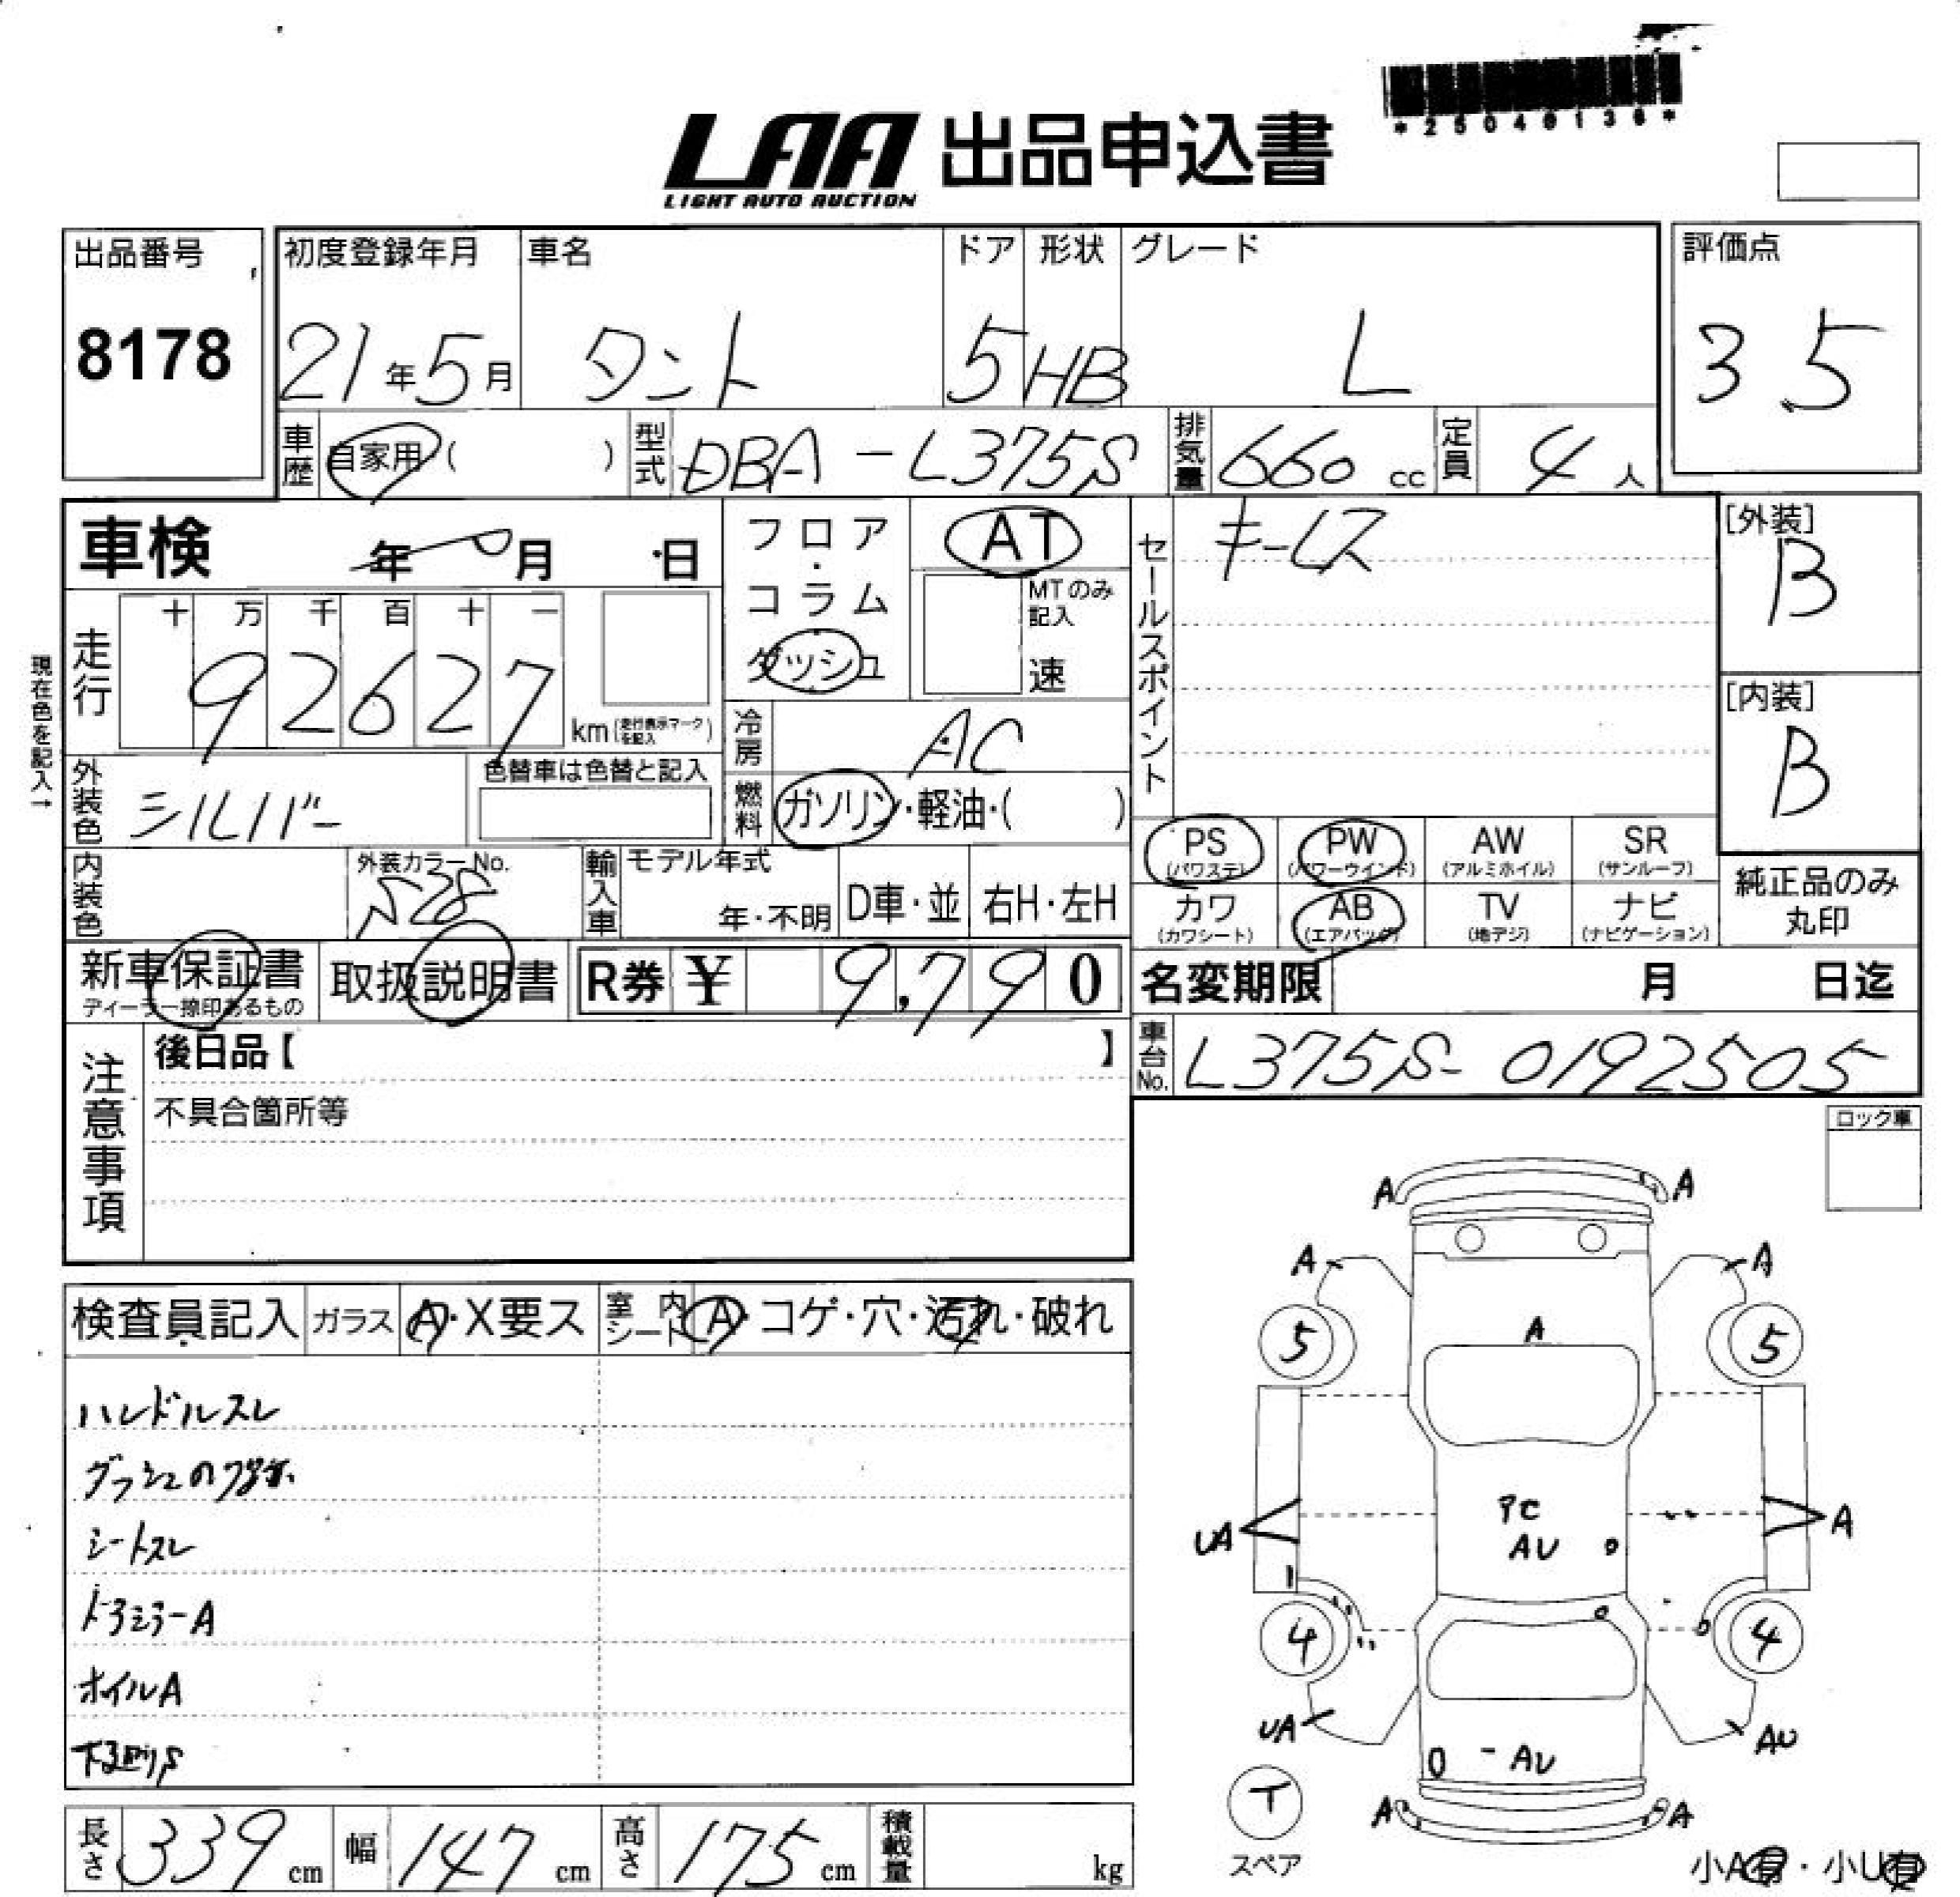 *25040136*
LAA 出品申込書
LIGHT AUTO AUCTION
出品番号 8178
初度登録年月 21年5月
車名 タント
ドア 5
形状 HB
グレード L
評価点 3.5
車歴 自家用( )
型式 DBA-L375S
排気量 660cc
定員 4人
車検 年 月 日
フロア・コラム ダッシュ
AT
MTのみ記入 速
セールスポイント キーレス
[外装] B
[内装] B
現在色を記入→
走行 十万千百十一
92627 km(走行表示マークを記入)
冷房 AC
外装色 シルバー
色替車は色替と記入
燃料 ガソリン・軽油・( )
PS (パワステ) PW (パワーウインド) AW (アルミホイル) SR (サンルーフ)
カワ (カワシート) AB (エアバッグ) TV (地デジ) ナビ (ナビゲーション)
純正品のみ丸印
内装色
外装カラーNo. S28
輸入車 モデル年式 年・不明 D車・並 右H・左H
新車保証書 ディーラー捺印あるもの
取扱説明書
R券 ¥ 9,790
名変期限 月 日迄
車台No. L375S-0192505
注意事項
後日品【 】
不具合箇所等
ロック車
検査員記入 ガラス A・X要ス 室内シート A・コゲ・穴・汚れ・破れ
ハンドルスレ
シートスレ
ドアミラーA
ホイルA
下廻りS
長さ 339cm 幅 147cm 高さ 175cm 積載量 kg
A A
A A
5 A 5
PC
UA AU A
4 4
UA AU
AU
T スペア
A A
小A有・小U有